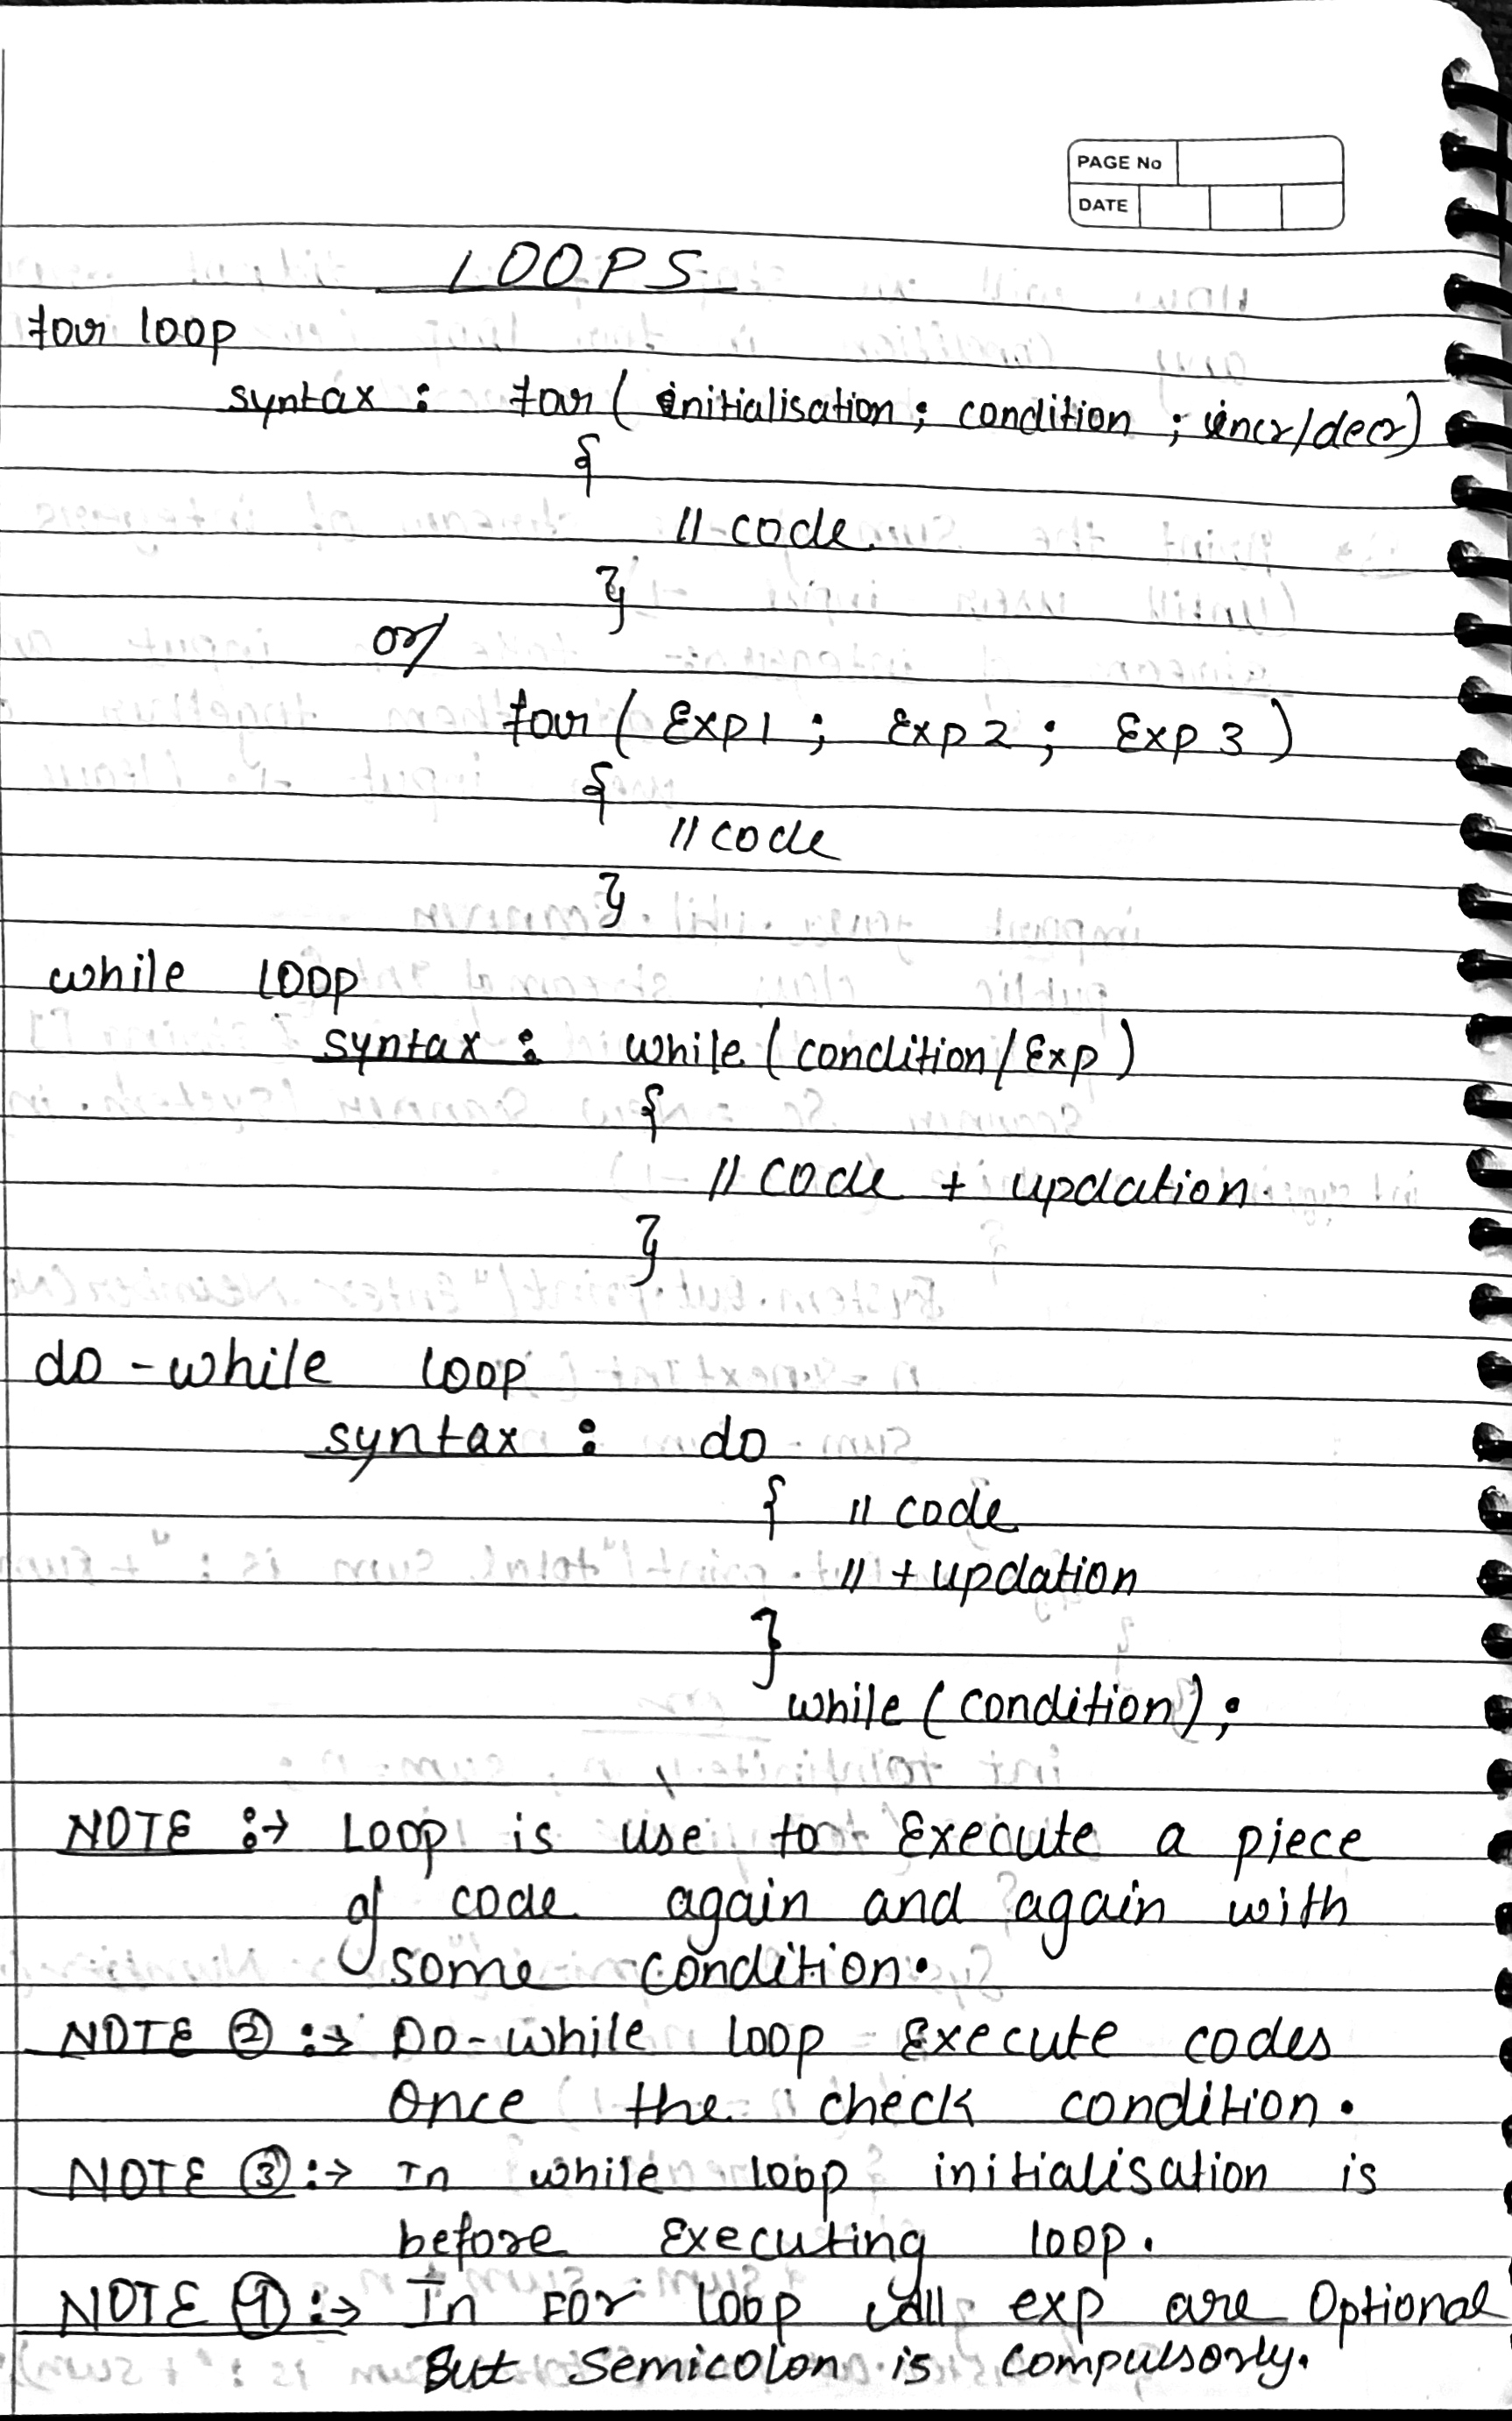 PAGE No
DATE
LOOPS
for loop
syntax : for( initialisation; condition ; incr/decr)
{
// code
}
or
for ( Exp1 ; Exp2 ; Exp 3 )
{
// code
}
while loop
syntax : while ( condition / Exp )
{
// code + updation.
}
do-while loop
syntax : do
{ // code
// + updation
}
while ( condition ) ;
NOTE :→ Loop is use to Execute a piece
of code again and again with
some condition.
NOTE ② :→ Do-while loop Execute codes
Once the check condition.
NOTE ③ :→ In while loop initialisation is
before Executing loop.
NOTE :→ In FOR loop all exp are Optional
But semicolon is compulsorly.